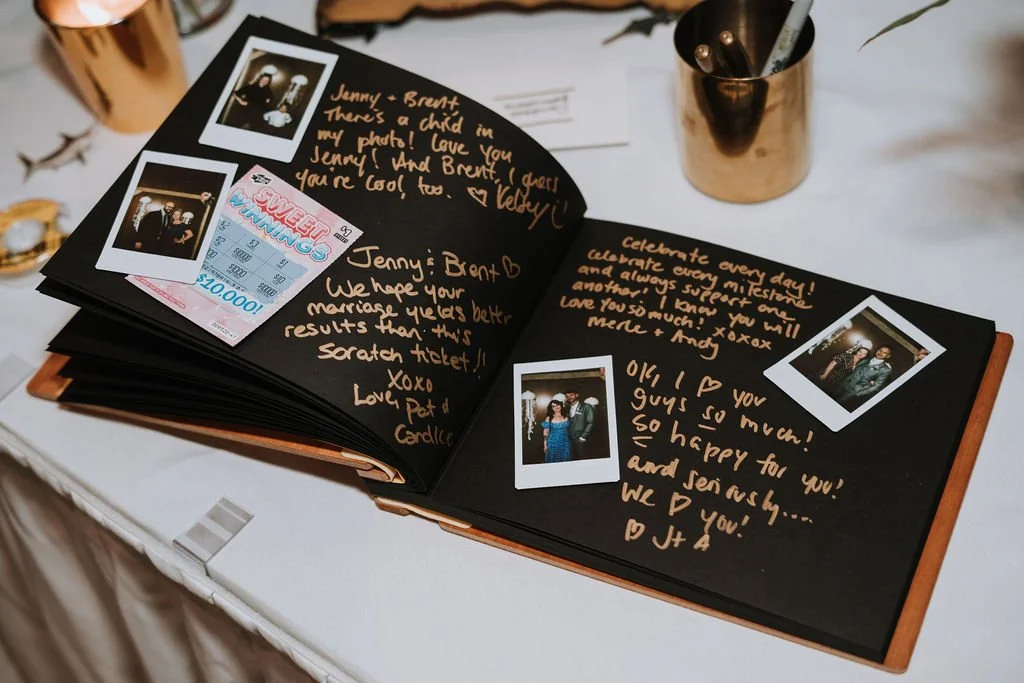 Jenny + Brent,
There's a child in
my photo! Love you
Jenny! And Brent, I guess
you're cool, too. ♡ Kelsey
SWEET
WINNINGS
$10,000!
Jenny & Brent ♡
We hope your
marriage yields better
results than this
scratch ticket!!
XOXO
Love, Pat &
Candice
Celebrate every day!
Celebrate every milestone
and always support one
another. I know you will
Love you so much! xoxox
Merle + Andy
OK, I ♡ you
guys so much!
so happy for you!
and seriously....
We ♡ you!
♡ J+A